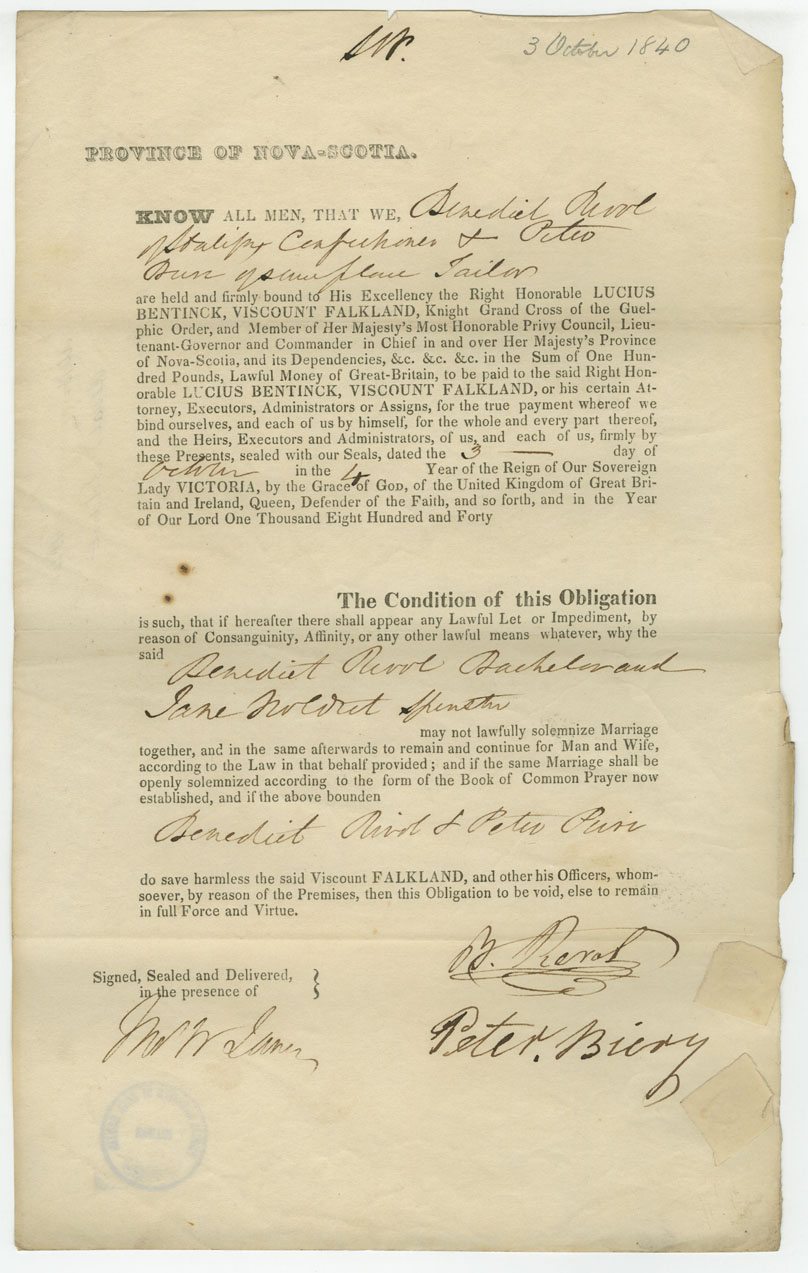 3 October 1840
PROVINCE OF NOVA-SCOTIA.
KNOW ALL MEN, THAT WE, Benedict Revol
of Halifax Confectioner & Peter
of same place Tailor
are held and firmly bound to His Excellency the Right Honorable LUCIUS
BENTINCK, VISCOUNT FALKLAND, Knight Grand Cross of the Guel-
phic Order, and Member of Her Majesty's Most Honorable Privy Council, Lieu-
tenant-Governor and Commander in Chief in and over Her Majesty's Province
of Nova-Scotia, and its Dependencies, &c. &c. &c. in the Sum of One Hun-
dred Pounds, Lawful Money of Great-Britain, to be paid to the said Right Hon-
orable LUCIUS BENTINCK, VISCOUNT FALKLAND, or his certain At-
torney, Executors, Administrators or Assigns, for the true payment whereof we
bind ourselves, and each of us by himself, for the whole and every part thereof,
and the Heirs, Executors and Administrators, of us, and each of us, firmly by
these Presents, sealed with our Seals, dated the 3 — day of
October in the 4 Year of the Reign of Our Sovereign
Lady VICTORIA, by the Grace of GOD, of the United Kingdom of Great Bri-
tain and Ireland, Queen, Defender of the Faith, and so forth, and in the Year
of Our Lord One Thousand Eight Hundred and Forty
The Condition of this Obligation
is such, that if hereafter there shall appear any Lawful Let or Impediment, by
reason of Consanguinity, Affinity, or any other lawful means whatever, why the
said
Benedict Revol Bachelor and
Jane Spinster
may not lawfully solemnize Marriage
together, and in the same afterwards to remain and continue for Man and Wife,
according to the Law in that behalf provided; and if the same Marriage shall be
openly solemnized according to the form of the Book of Common Prayer now
established, and if the above bounden
Benedict Revol & Peter
do save harmless the said Viscount FALKLAND, and other his Officers, whom-
soever, by reason of the Premises, then this Obligation to be void, else to remain
in full Force and Virtue.
B. Revol
Signed, Sealed and Delivered,
in the presence of
Peter. Biery